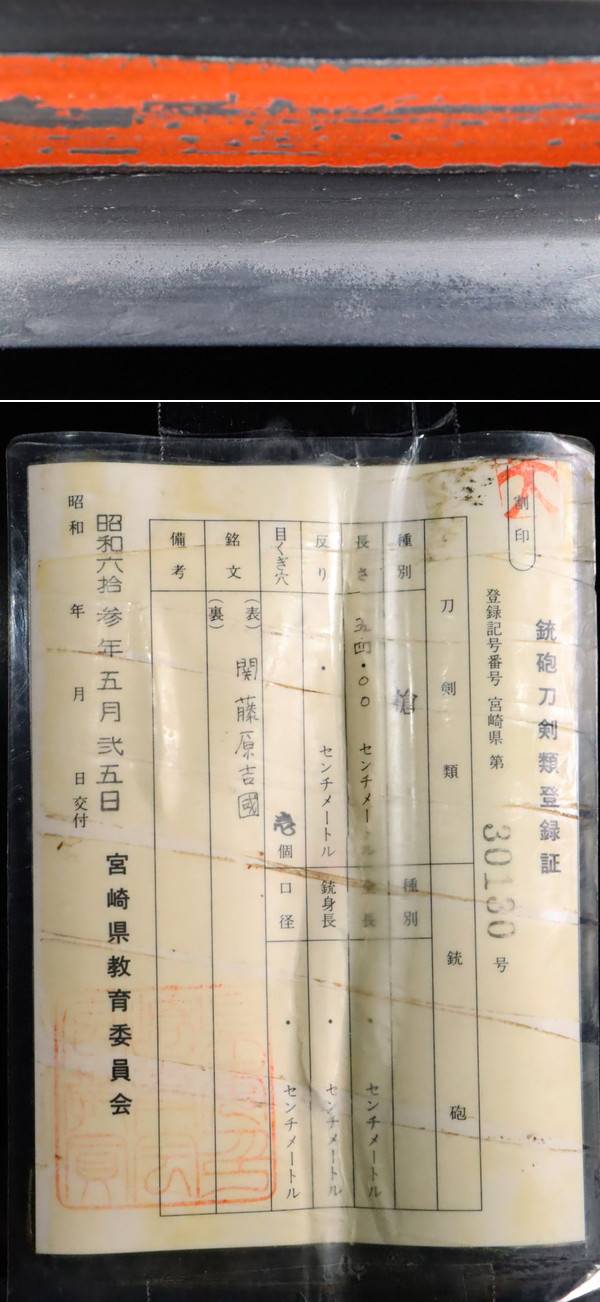 割印
銃砲刀剣類登録証
登録記号番号 宮崎県 第 30130 号
刀剣類
銃砲
種別 槍
種別
長さ 五四・〇〇 センチメートル
全長 ・ センチメートル
反り ・ センチメートル
銃身長 ・ センチメートル
目くぎ穴 壱個
口径 ・ センチメートル
銘文 (表) 関藤原吉國
(裏)
備考
昭和六拾参年五月弐五日
宮崎県教育委員会
昭和 年 月 日交付